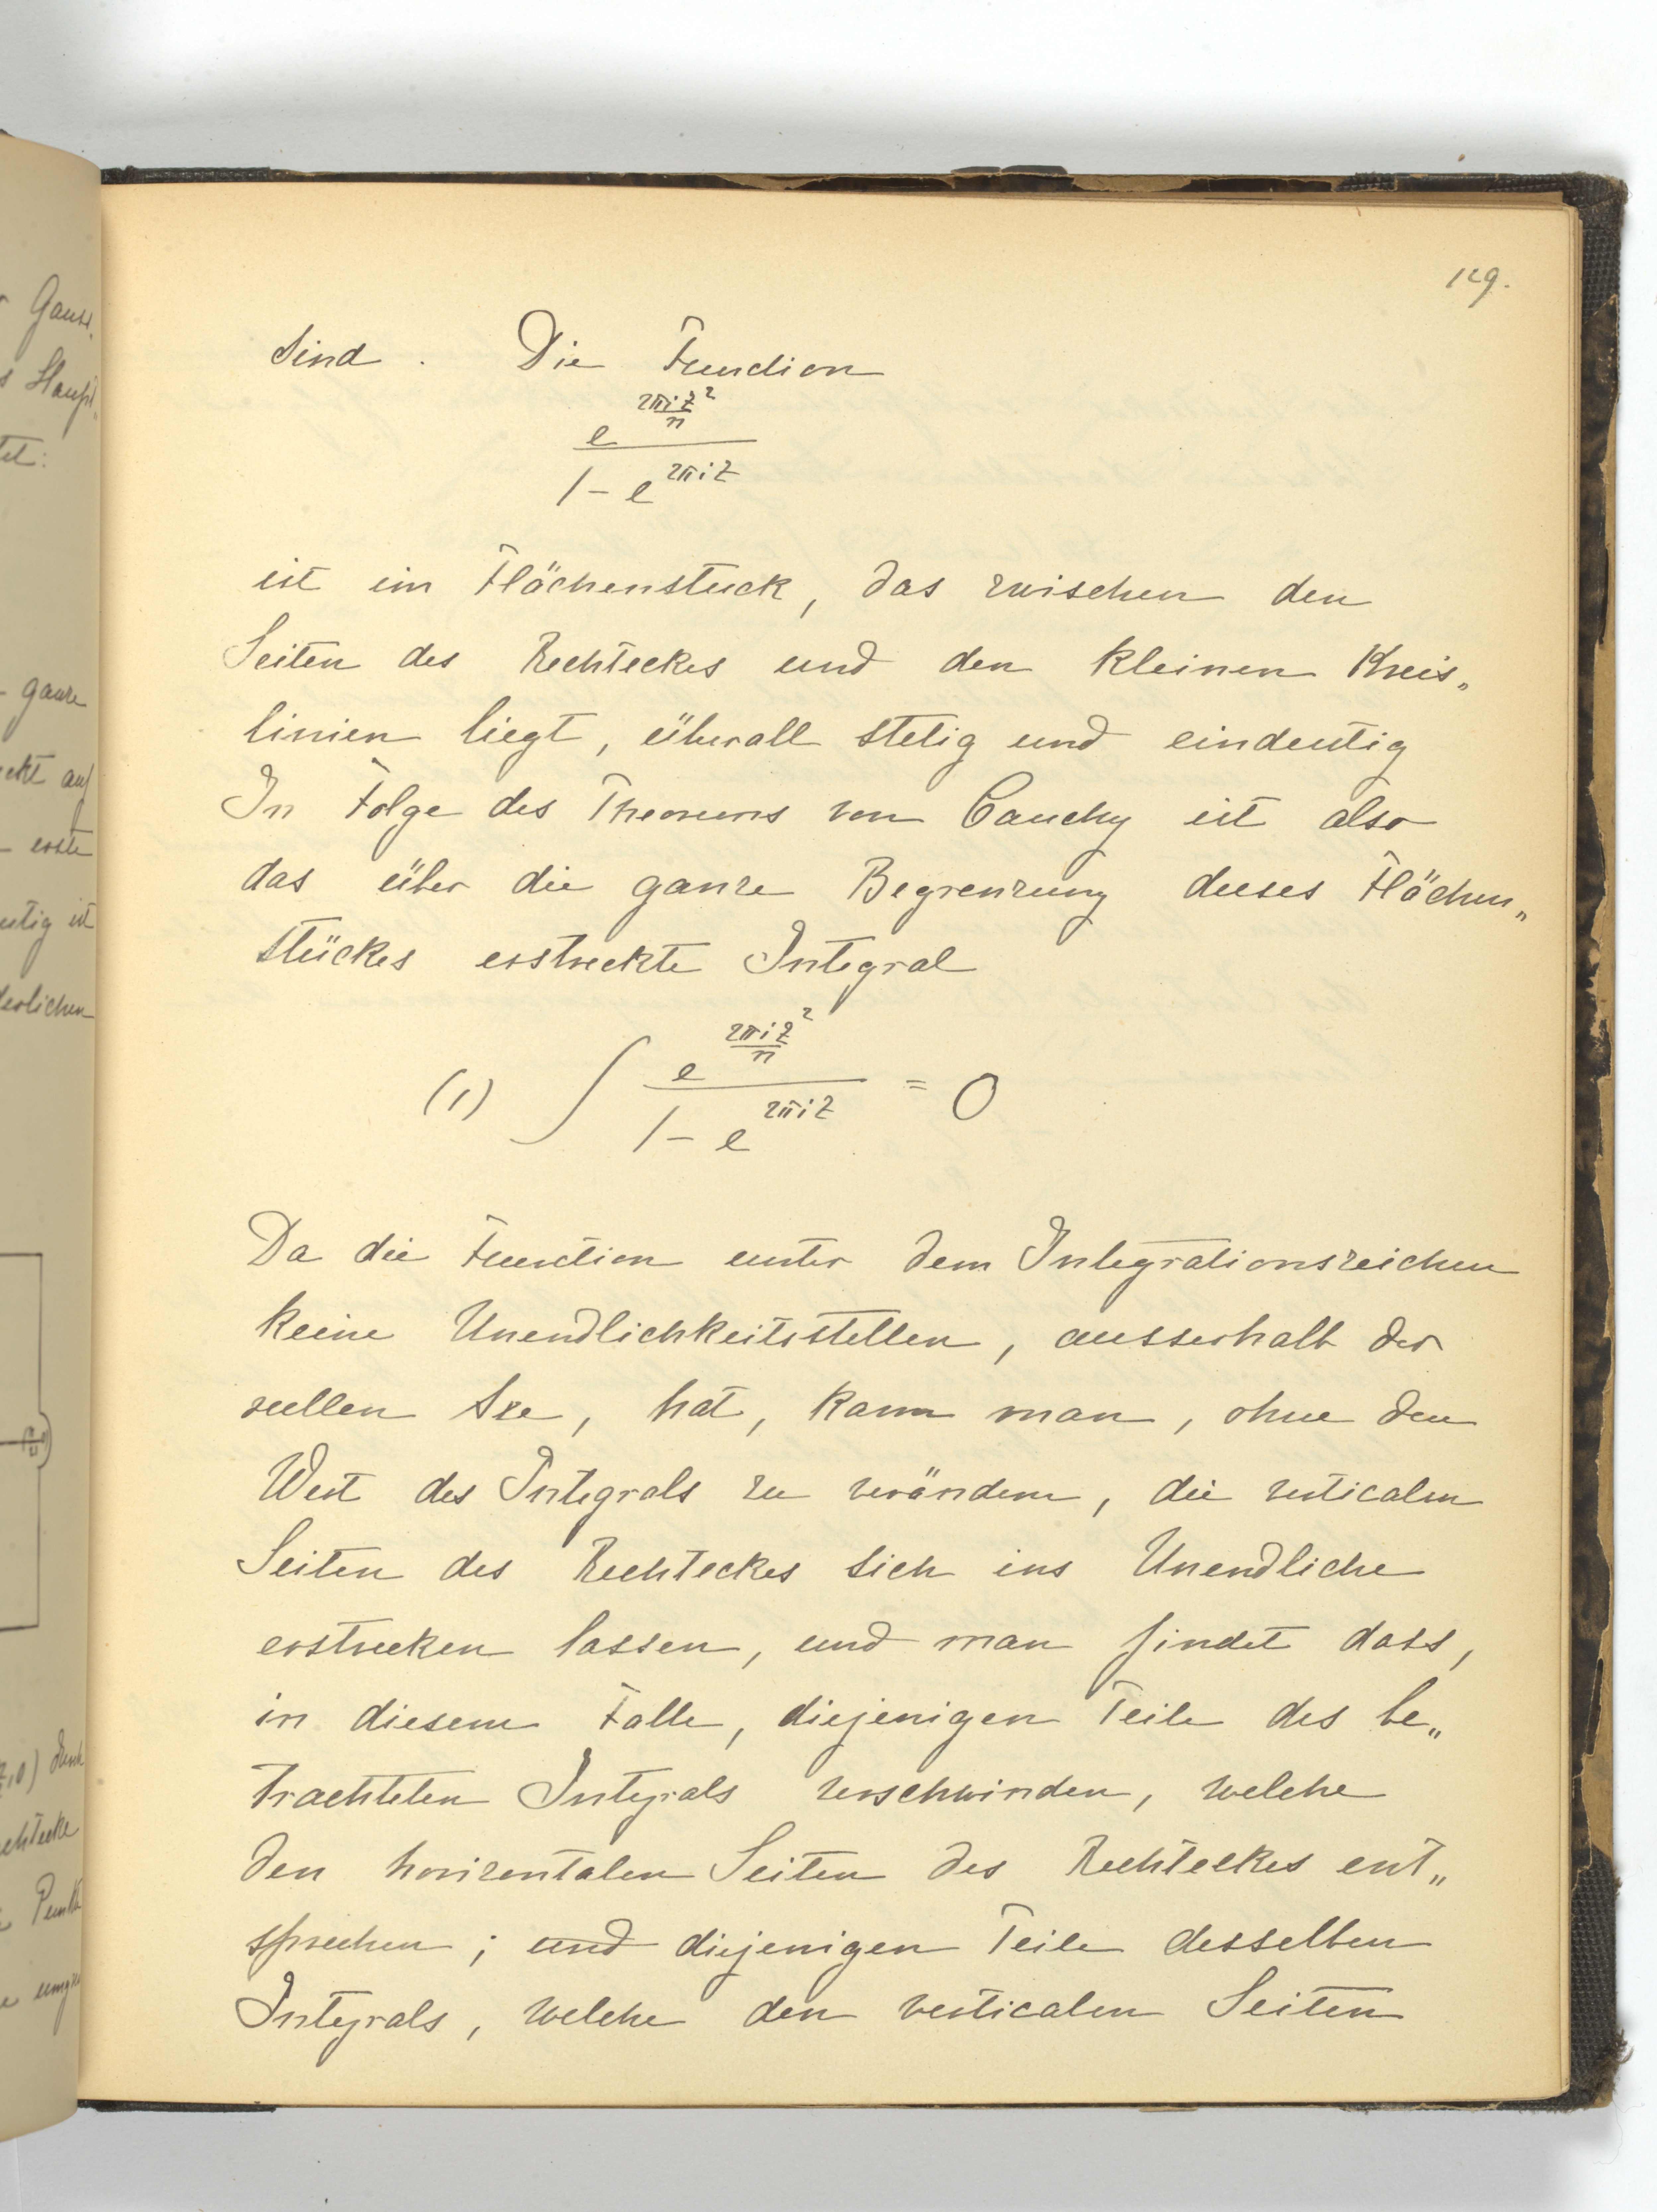 129.
sind . Die Function
e^{\frac{2πi z^2}{n}}
1 - e^{2πiz}
ist im Flächenstück, das zwischen den
Seiten des Rechteckes und den kleinen Kreis„
linien liegt, überall stetig und eindeutig
In Folge des Theorems von Cauchy ist also
das über die ganze Begrenzung dieses Flächen„
stückes erstreckte Integral
(1) ∫ \frac{e^{\frac{2πi z^2}{n}}}{1 - e^{2πiz}} = 0
Da die Function unter dem Integrationszeichen
keine Unendlichkeitsstellen, ausserhalb der
reellen Axe, hat, kann man, ohne den
Wert des Integrals zu verändern, die verticalen
Seiten des Rechteckes sich ins Unendliche
erstrecken lassen, und man findet dass,
in diesem Falle, diejenigen Teile des be„
trachteten Integrals verschwinden, welche
den horizontalen Seiten des Rechteckes ent„
sprechen ; und diejenigen Teile desselben
Integrals, welche den verticalen Seiten